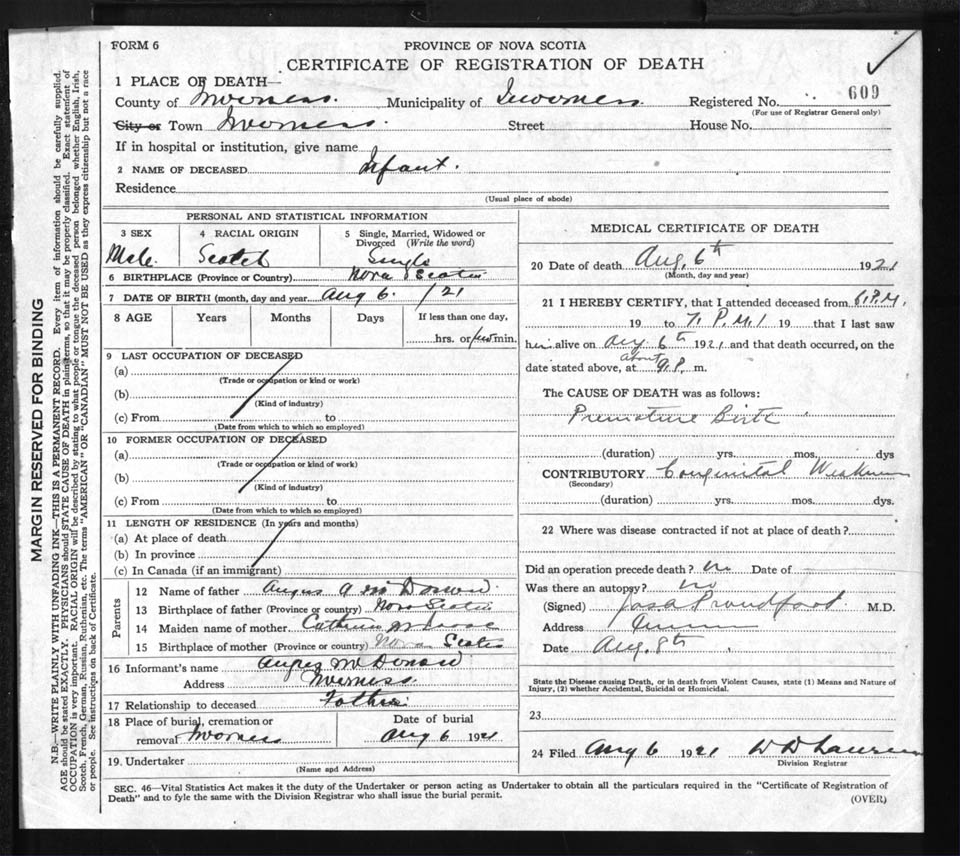 FORM 6
PROVINCE OF NOVA SCOTIA
CERTIFICATE OF REGISTRATION OF DEATH
1 PLACE OF DEATH—
County of Inverness. Municipality of Inverness. Registered No. 609
(For use of Registrar General only)
City or Town Inverness. Street House No.
If in hospital or institution, give name
2 NAME OF DECEASED Infant.
Residence
(Usual place of abode)
PERSONAL AND STATISTICAL INFORMATION
3 SEX 4 RACIAL ORIGIN 5 Single, Married, Widowed or Divorced (Write the word)
Male. Scotch Single
6 BIRTHPLACE (Province or Country) Nova Scotia
7 DATE OF BIRTH (month, day and year) Aug 6. /21
8 AGE Years Months Days If less than one day,
hrs. or min.
9 LAST OCCUPATION OF DECEASED
(a)
(Trade or occupation or kind or work)
(b)
(Kind of industry)
(c) From to
(Date from which to which so employed)
10 FORMER OCCUPATION OF DECEASED
(a)
(Trade or occupation or kind of work)
(b)
(Kind of industry)
(c) From to
(Date from which to which so employed)
11 LENGTH OF RESIDENCE (In years and months)
(a) At place of death
(b) In province
(c) In Canada (if an immigrant)
Parents
12 Name of father Angus A McDonald
13 Birthplace of father (Province or country) Nova Scotia
14 Maiden name of mother Catherine
15 Birthplace of mother (Province or country) Nova Scotia
16 Informant's name Angus McDonald
Address Inverness.
17 Relationship to deceased Father
18 Place of burial, cremation or removal Inverness
Date of burial Aug 6 1921
19. Undertaker
(Name and Address)
MEDICAL CERTIFICATE OF DEATH
20 Date of death Aug, 6th 1921
(Month, day and year)
21 I HEREBY CERTIFY, that I attended deceased from P.M.
19 to 7. P.M. 19 that I last saw
him alive on Aug 6th 1921 and that death occurred, on the
date stated above, at about 9 P. m.
The CAUSE OF DEATH was as follows:
Premature Birth
(duration) yrs. mos. dys
CONTRIBUTORY Congenital Weakness
(Secondary)
(duration) yrs. mos. dys.
22 Where was disease contracted if not at place of death?
Did an operation precede death? no Date of
Was there an autopsy? no
(Signed) Jas A Proudfoot M.D.
Address
Date Aug. 8th
State the Disease causing Death, or in death from Violent Causes, state (1) Means and Nature of
Injury, (2) whether Accidental, Suicidal or Homicidal.
23
24 Filed Aug 6 1921
Division Registrar
SEC. 46—Vital Statistics Act makes it the duty of the Undertaker or person acting as Undertaker to obtain all the particulars required in the "Certificate of Registration of
Death" and to fyle the same with the Division Registrar who shall issue the burial permit.
(OVER)
MARGIN RESERVED FOR BINDING
N.B.—WRITE PLAINLY WITH UNFADING INK—THIS IS A PERMANENT RECORD. Every item of information should be carefully supplied.
AGE should be stated EXACTLY. PHYSICIANS should STATE CAUSE OF DEATH in plain terms, so that it may be properly classified. Exact statement of
OCCUPATION is very important. RACIAL ORIGIN will be described by stating to what people or tongue the deceased person belonged whether English, Irish,
Scotch, French, German, Russian, Ruthenian, etc. The terms "AMERICAN" OR "CANADIAN" MUST NOT BE USED as they express citizenship but not a race
or people. See instructions on back of Certificate.